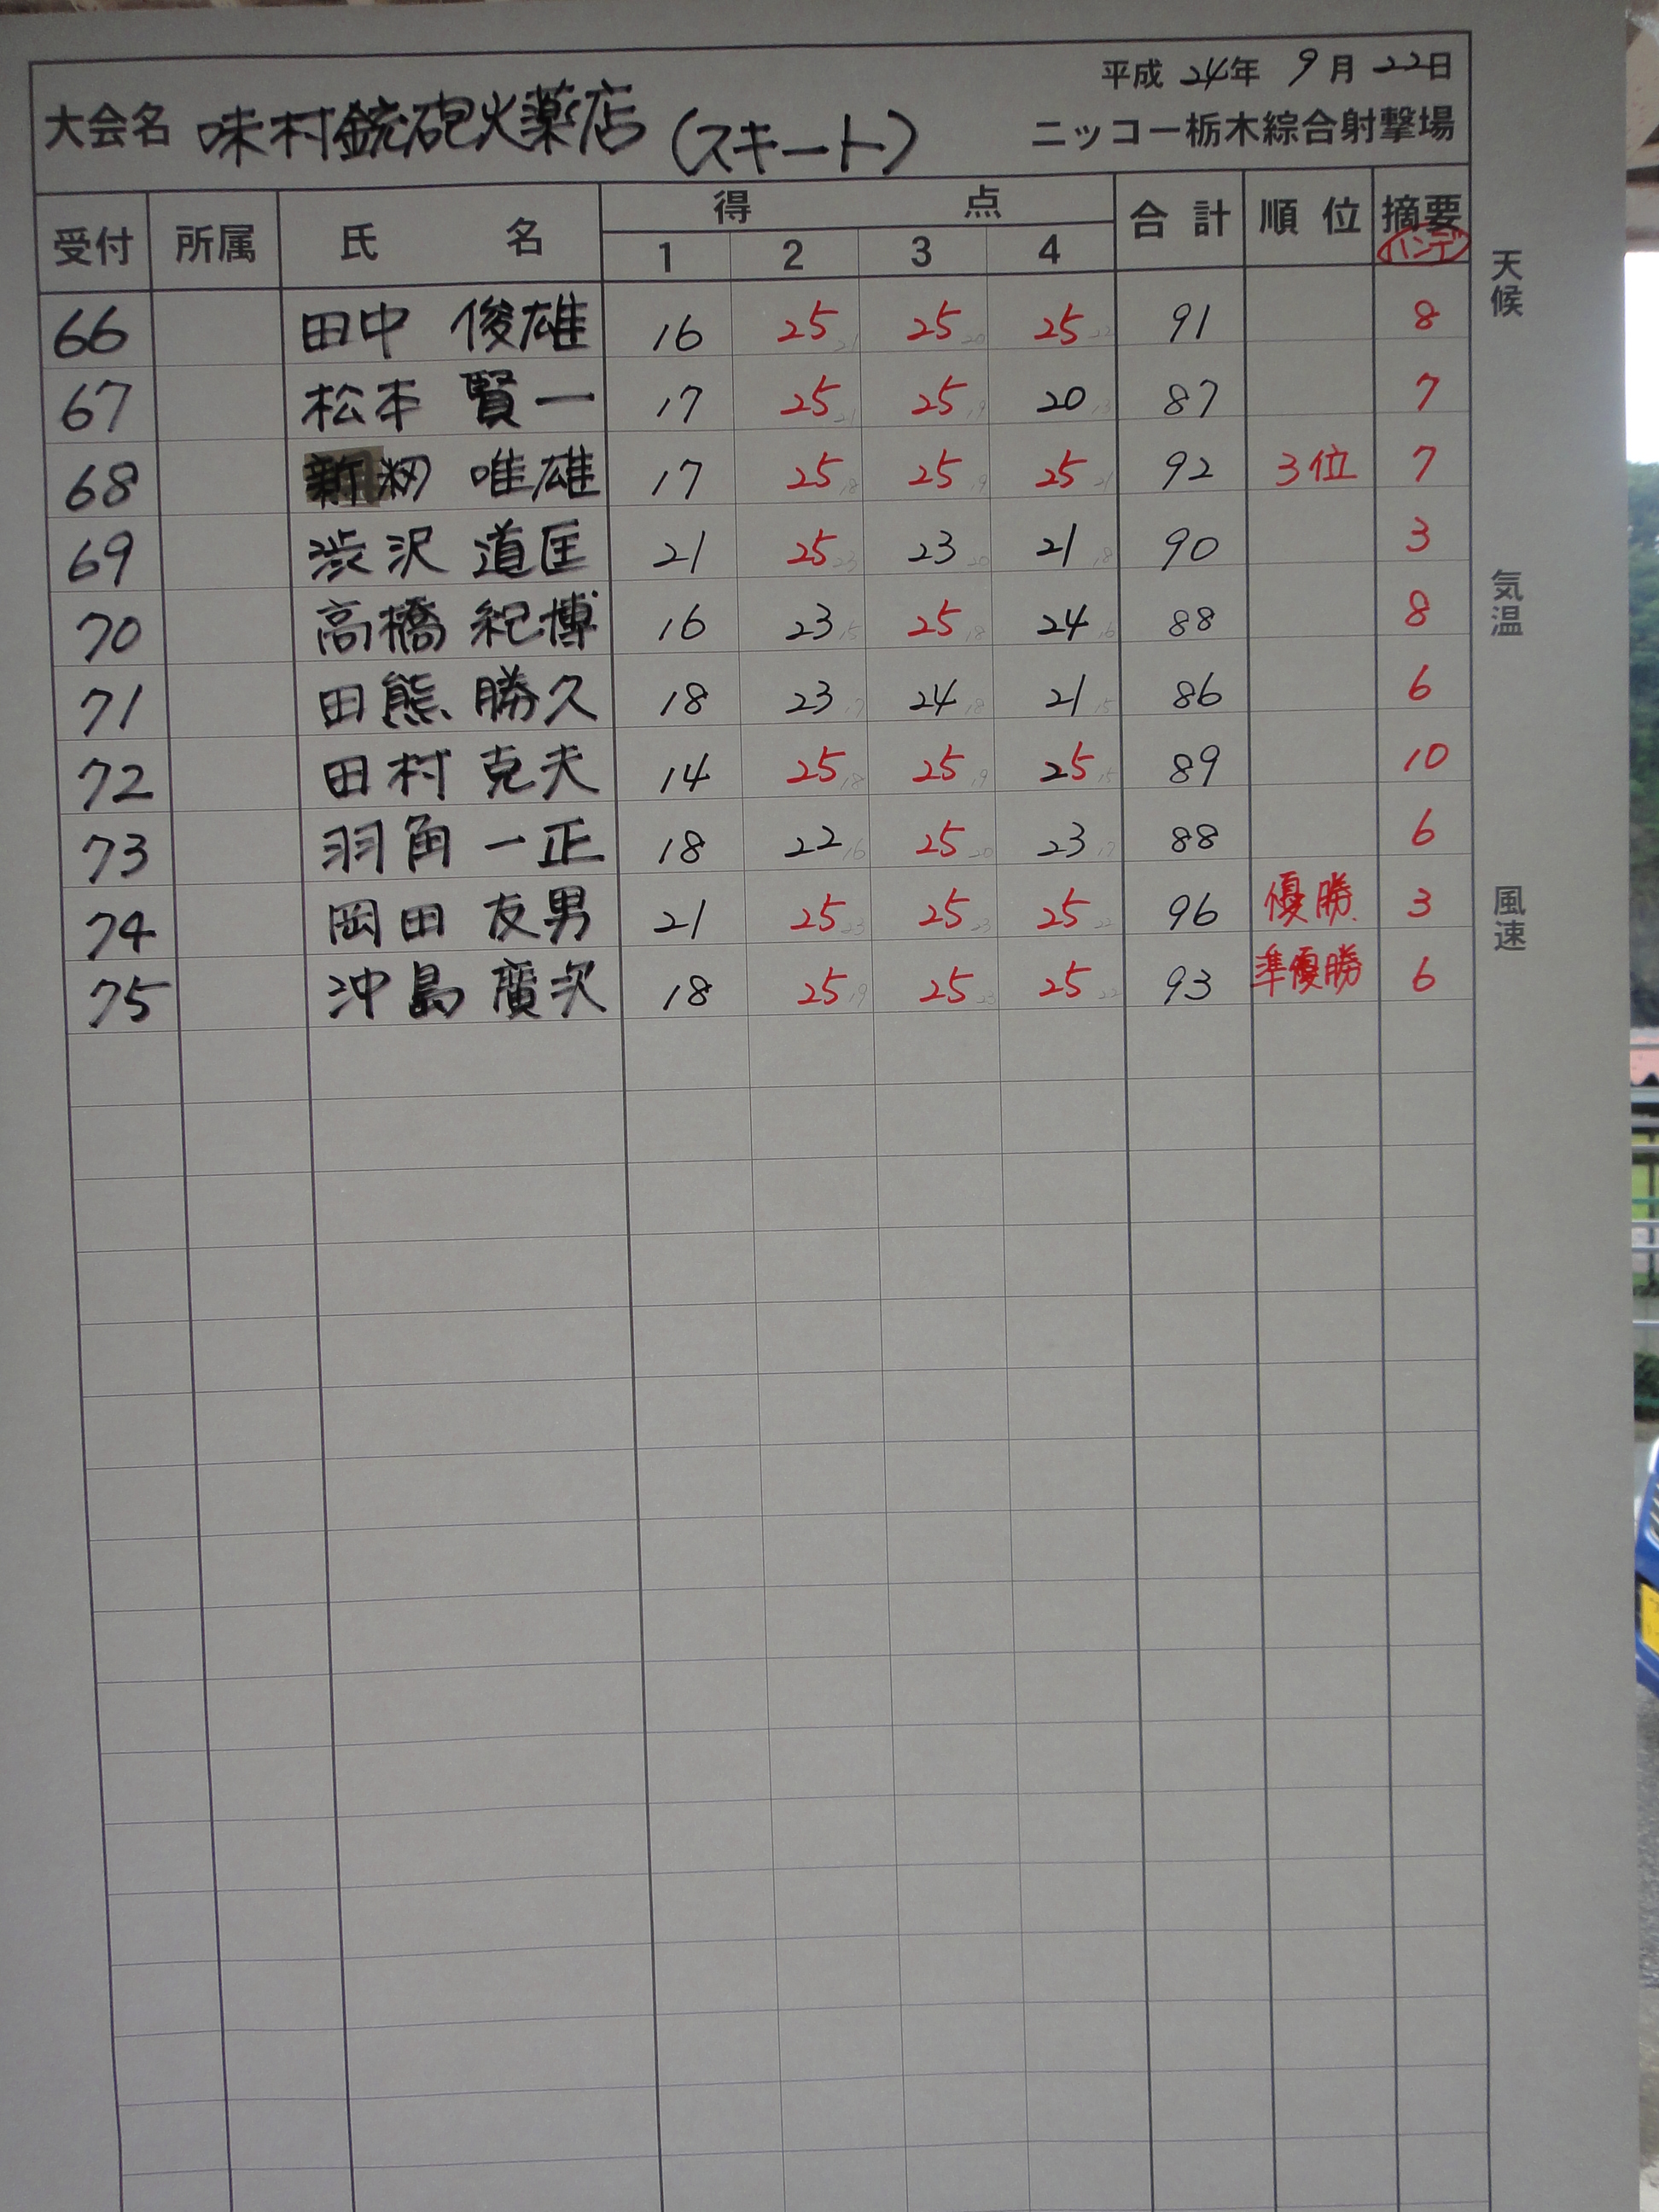 平成 24年 9月 22日
大会名 味村銃砲火薬店 (スキート) ニッコー栃木綜合射撃場
受付 所属 氏名 得点 合計 順位 摘要
1 2 3 4 ハンデ
66 田中 俊雄 16 25 21 25 20 25 22 91 8
67 松本 賢一 17 25 21 25 19 20 13 87 7
68 新籾 唯雄 17 25 18 25 19 25 21 92 3位 7
69 渋沢 道匡 21 25 23 23 20 21 18 90 3
70 高橋 紀博 16 23 15 25 18 24 16 88 8
71 田熊 勝久 18 23 17 24 18 21 15 86 6
72 田村 克夫 14 25 18 25 19 25 15 89 10
73 羽角 一正 18 22 16 25 20 23 17 88 6
74 岡田 友男 21 25 23 25 23 25 22 96 優勝 3
75 沖島 廣次 18 25 19 25 23 25 22 93 準優勝 6
天候
気温
風速